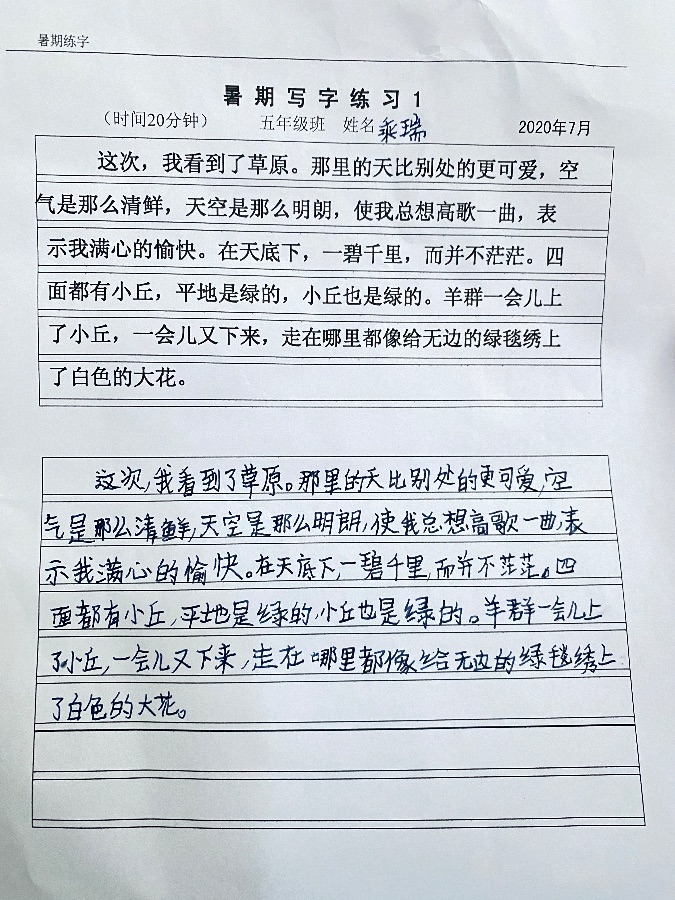 暑期练字
暑期写字练习1
（时间20分钟） 五年级班 姓名 乘瑞 2020年7月
这次，我看到了草原。那里的天比别处的更可爱，空
气是那么清鲜，天空是那么明朗，使我总想高歌一曲，表
示我满心的愉快。在天底下，一碧千里，而并不茫茫。四
面都有小丘，平地是绿的，小丘也是绿的。羊群一会儿上
了小丘，一会儿又下来，走在哪里都像给无边的绿毯绣上
了白色的大花。
这次，我看到了草原。那里的天比别处的更可爱，空
气是那么清鲜，天空是那么明朗，使我总想高歌一曲，表
示我满心的愉快。在天底下，一碧千里，而并不茫茫。四
面都有小丘，平地是绿的，小丘也是绿的。羊群一会儿上
了小丘，一会儿又下来，走在哪里都像给无边的绿毯绣上
了白色的大花。